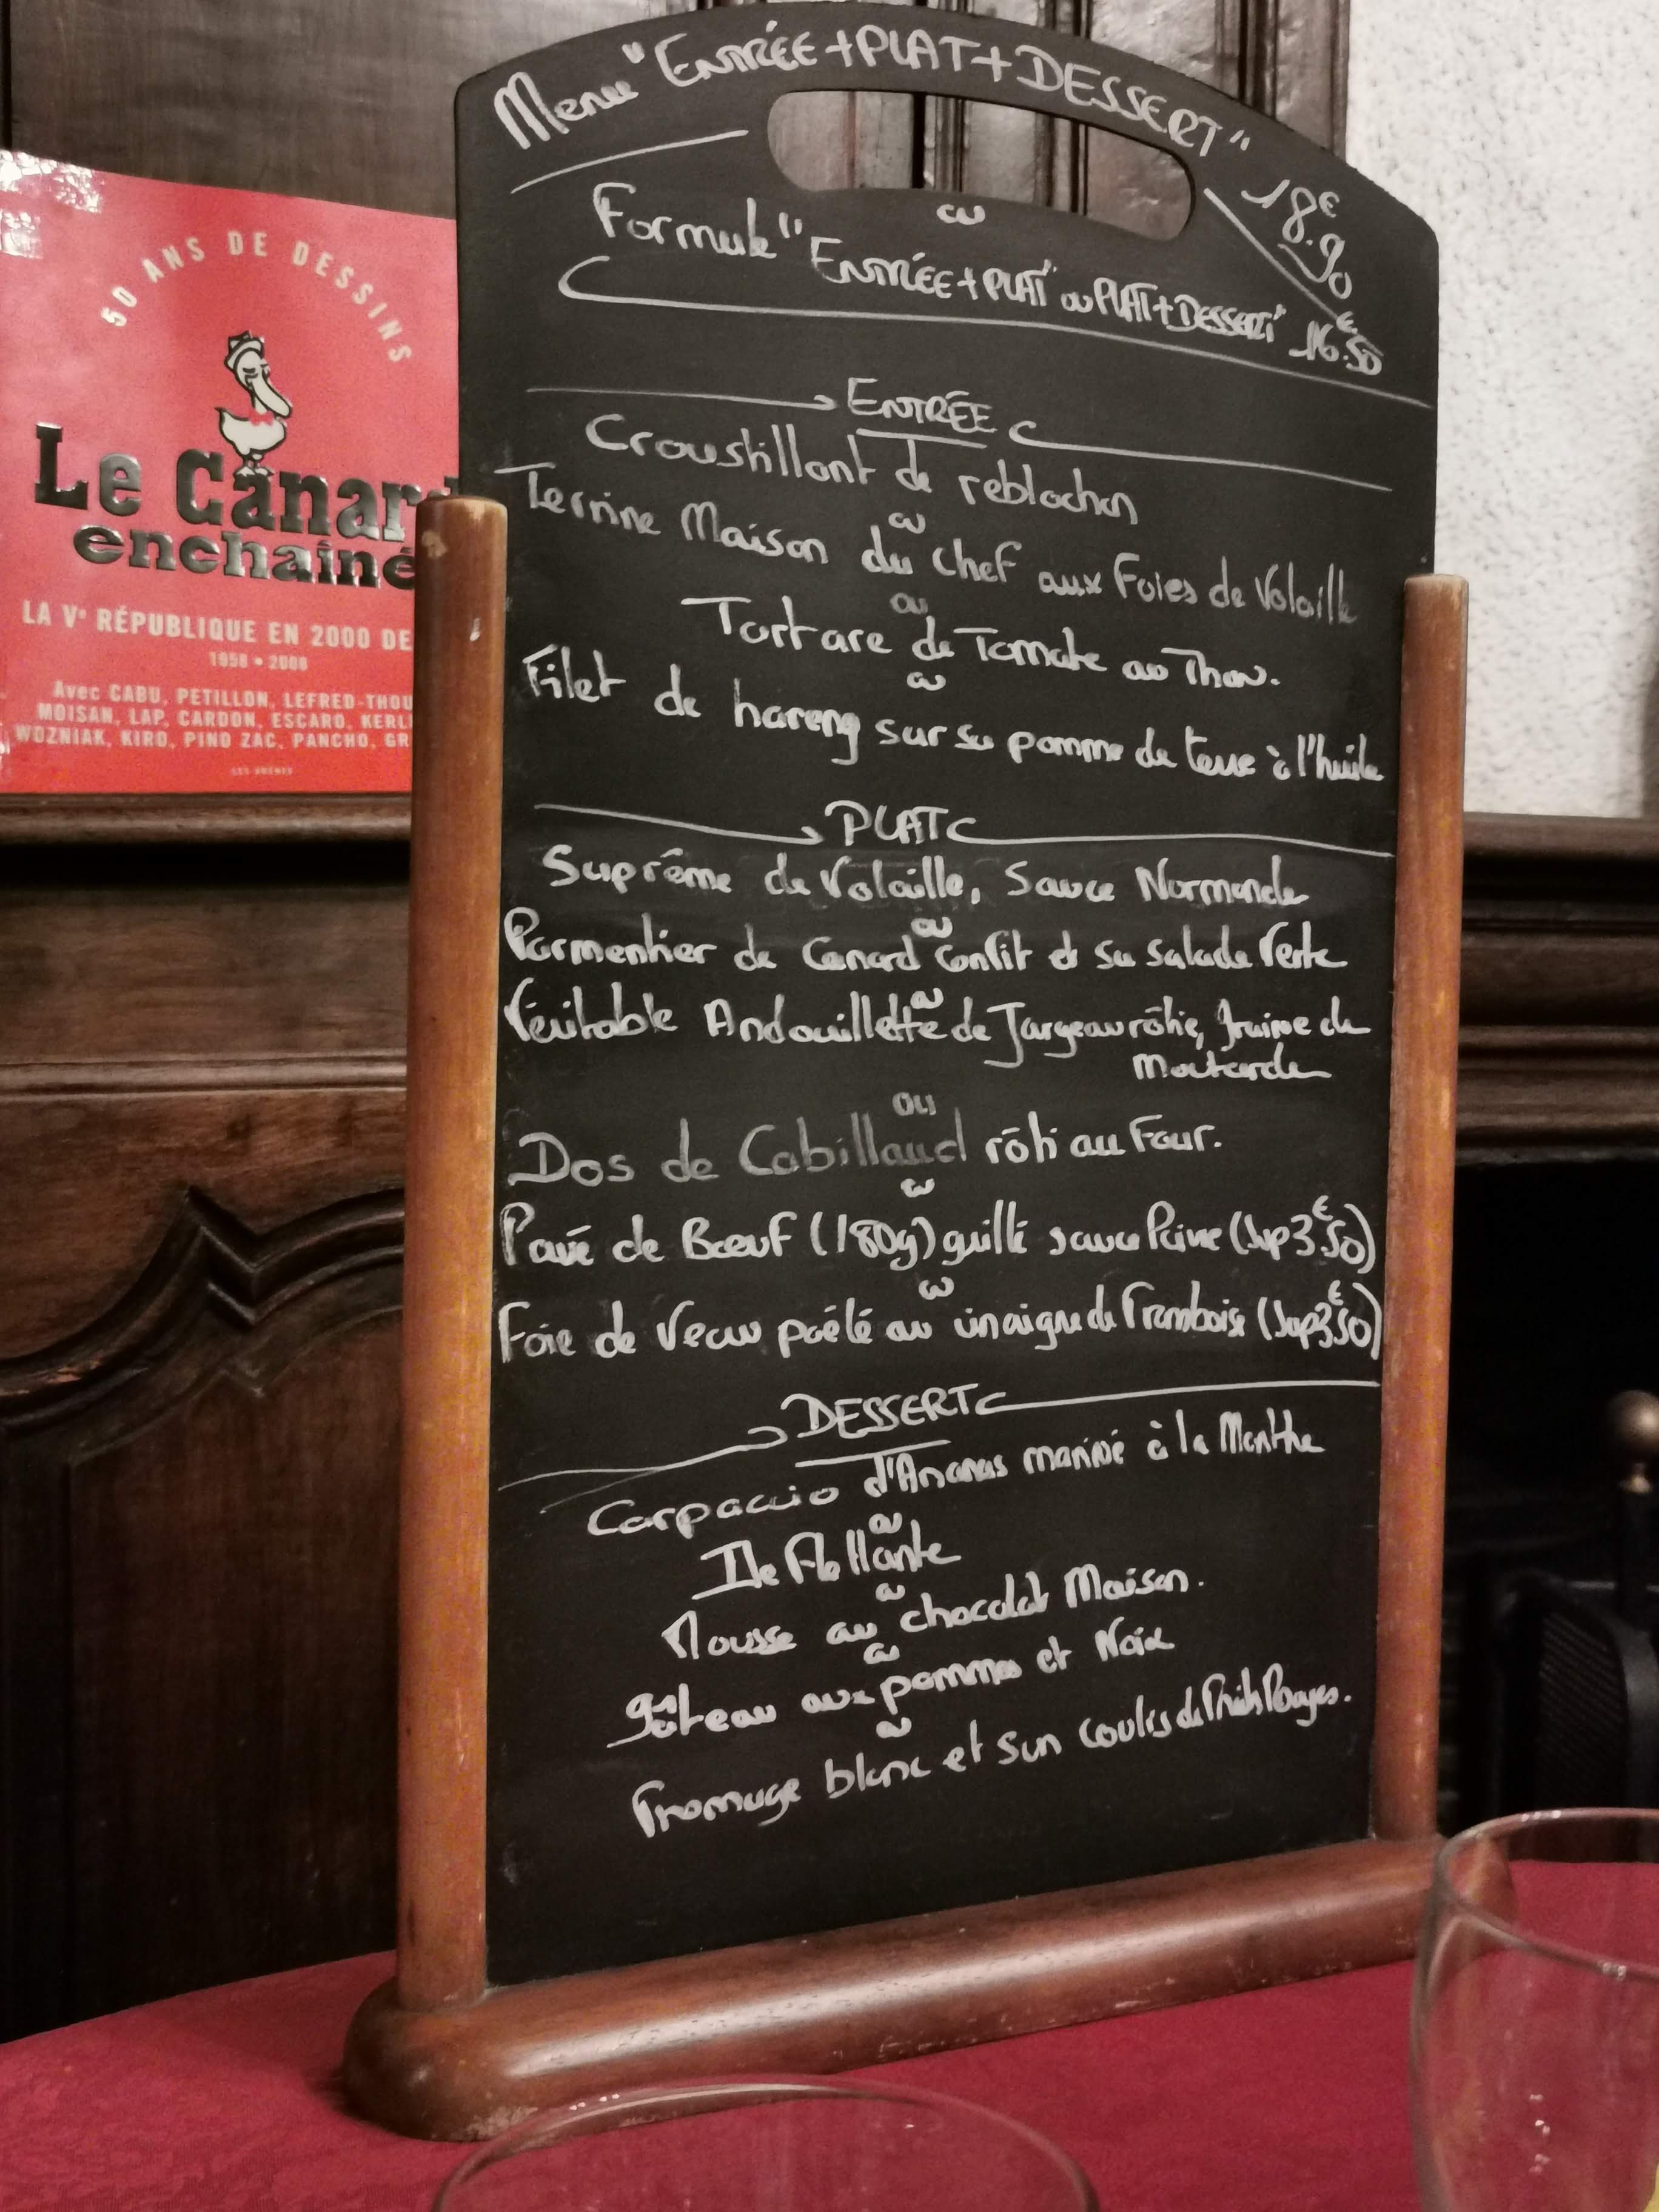 Menu "ENTRÉE+PLAT+DESSERT" 18€.90
ou
Formule "ENTRÉE+PLAT" ou PLAT+DESSERT" 16€.50
ENTRÉE
Croustillant de reblochon
ou
Terrine Maison du chef aux Foies de Volaille
ou
Tartare de Tomate au Thon.
ou
Filet de hareng sur sa pomme de terre à l'huile
PLAT
Suprême de Volaille, Sauce Normande
ou
Parmentier de Canard Confit et sa salade Verte
ou
Véritable Andouillette de Jargeau rôtie, graine de
Moutarde
ou
Dos de Cabillaud rôti au Four.
ou
Pavé de Bœuf (180g) grillé sauce Poivre (sup 3€50)
ou
Foie de Veau poêlé au vinaigre de Framboise (sup 3€50)
DESSERT
Carpaccio d'Ananas mariné à la Menthe
ou
Ile Flottante
ou
Mousse au chocolat Maison.
ou
gâteau aux pommes et Noix
ou
Fromage blanc et son coulis de Fruits Rouges.
50 ANS DE DESSINS
Le Canard
enchaîné
LA Ve RÉPUBLIQUE EN 2000 DE
1958 • 2008
Avec CABU, PETILLON, LEFRED-THOU
MOISAN, LAP, CARDON, ESCARO, KERL
WOZNIAK, KIRO, PINO ZAC, PANCHO, GR
LES ARÈNES